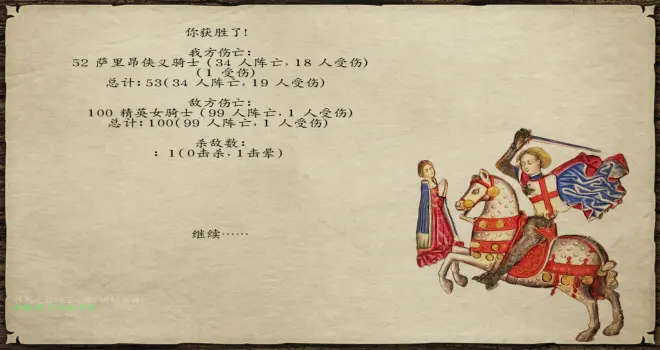 你获胜了!
我方伤亡:
52 萨里昂侠义骑士 (34 人阵亡, 18 人受伤)
(1 受伤)
总计: 53(34 人阵亡, 19 人受伤)
敌方伤亡:
100 精英女骑士 (99 人阵亡, 1 人受伤)
总计: 100(99 人阵亡, 1 人受伤)
杀敌数:
: 1(0击杀, 1击晕)
继续……